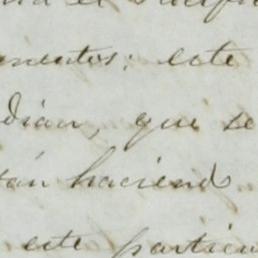 nentos: este
dian, que se
tán haciend
este particu